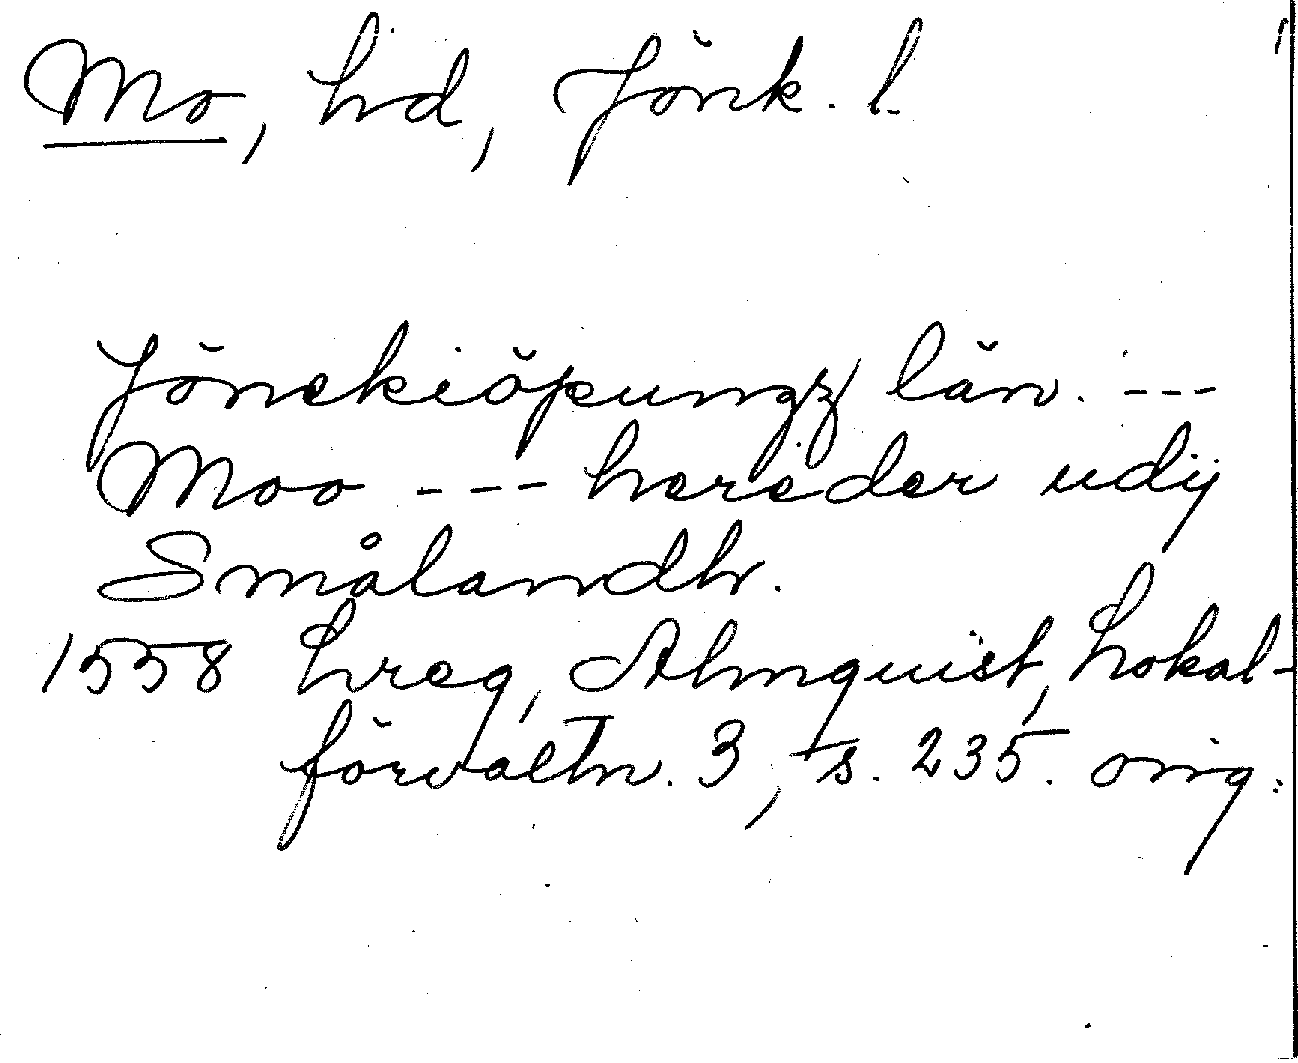 Mo, hd, Jönk. l.
Jönekiöpungz län. ---
Moo --- hereder udij
Smålandh.
1558 hreg, Almquist, Lokal-
förvaltn. 3, s. 235. orig.